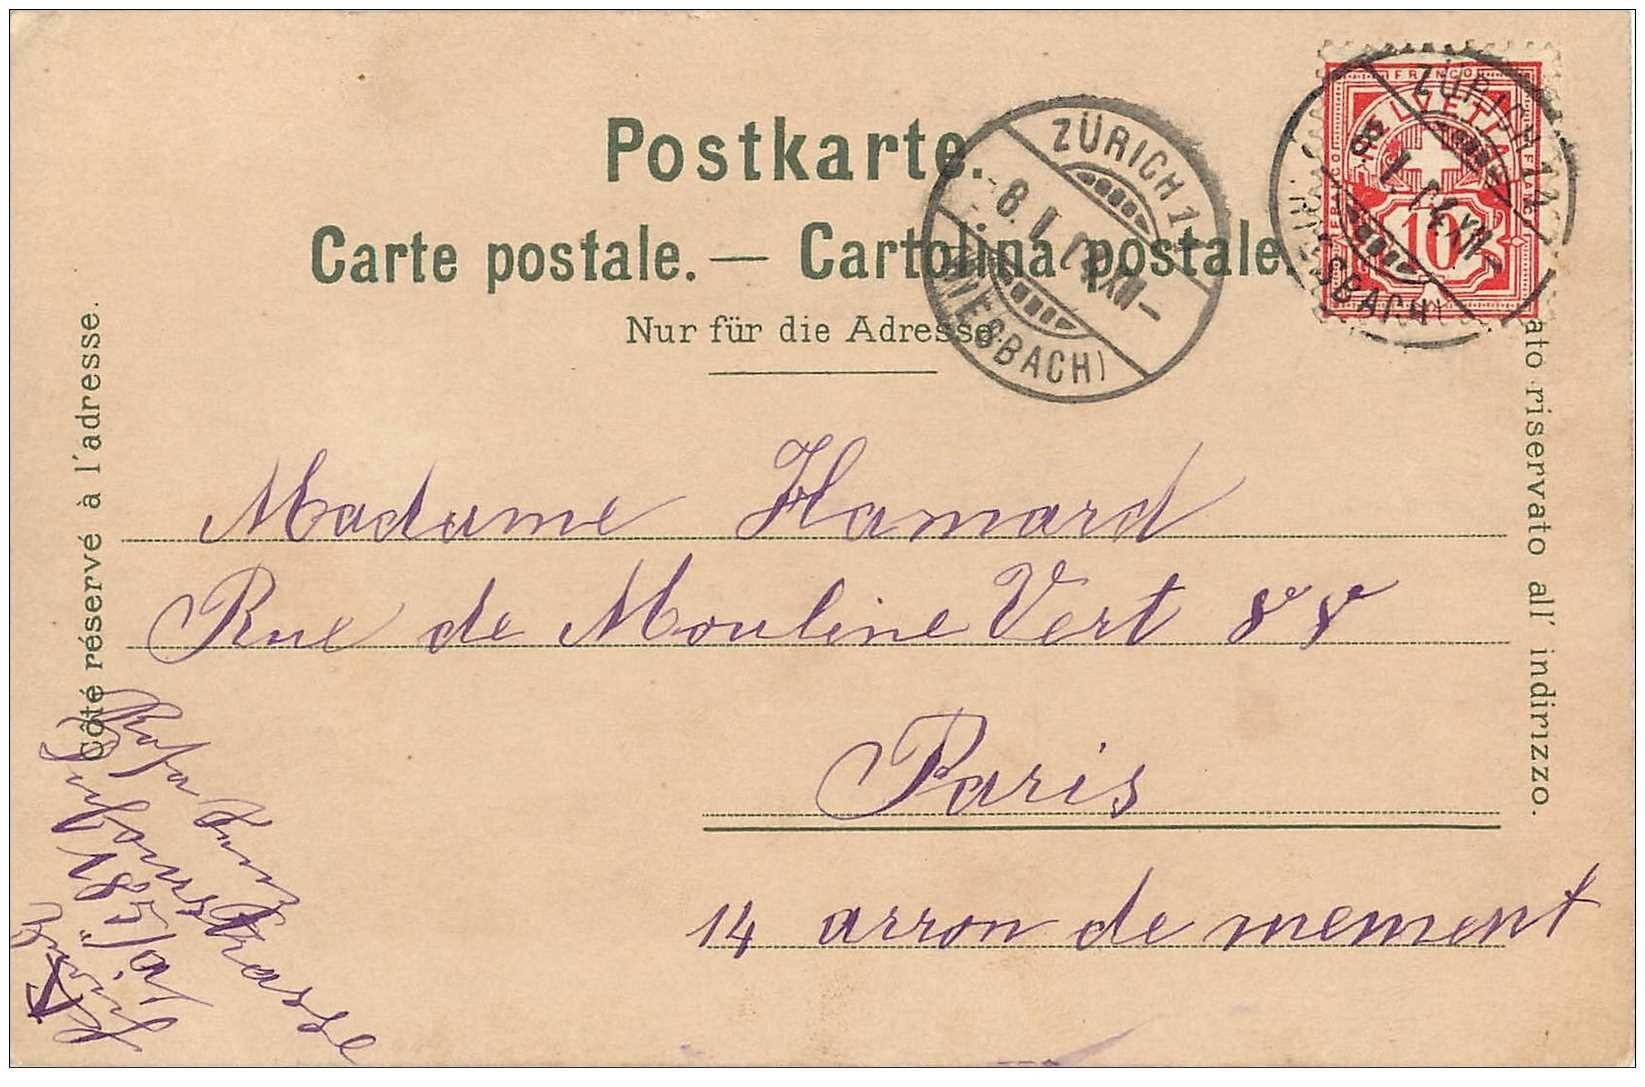 Postkarte.
Carte postale. — Cartolina postale.
Nur für die Adresse.
Côté réservé à l'adresse.
ato riservato all' indirizzo.
FRANCO
HELVETIA
10
ZÜRICH 1
8. I. 04. XII–
(RIESBACH)
ZÜRICH 1
8. I. 04. XII–
(RIESBACH)
Madame Hamard
Rue de Mouline Vert 88
Paris
14 arron de mement
Rosa
Dufourstrasse
Zürich